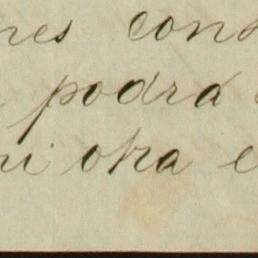 nes cons
podrá
ni otra e